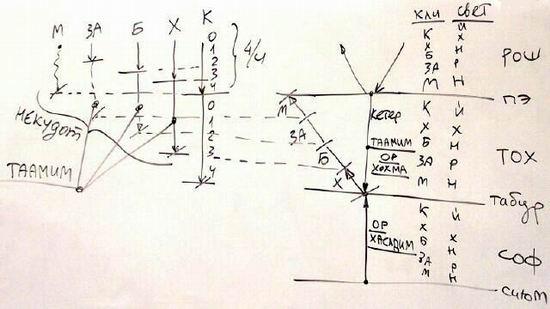 М ЗА Б Х К
0
1
2
3
4
4/4
0
1
2
3
4
НЕКУДОТ
ТААМИМ
КЛИ СВЕТ
К Й
Х Х
Б Н
ЗА Р
М Н
РОШ
ПЭ
М
ЗА
Б
Х
КЕТЕР
ТААМИМ
ОР
ХОХМА
К Й
Х Х
Б Н
ЗА Р
М Н
ТОХ
ТАБУР
ОР
ХАСАДИМ
К Й
Х Х
Б Н
ЗА Р
М Н
СОФ
СИЮМ